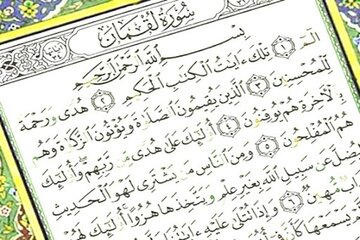 سورة لقمان
بسم الله الرحمن الرحيم
الم ۝١ تلك ءايت الكتب الحكيم ۝٢ هدى ورحمة
للمحسنين ۝٣ الذين يقيمون الصلوة ويؤتون الزكوة وهم
بالاخرة هم يوقنون ۝٤ أولئك على هدى من ربهم وأولئك
هم المفلحون ۝٥ ومن الناس من يشترى لهو الحديث
ليضل عن سبيل الله بغير علم ويتخذها هزوا أولئك لهم
مهين ۝٦ وإذا تتلى عليه ءايتنا
يسمعها